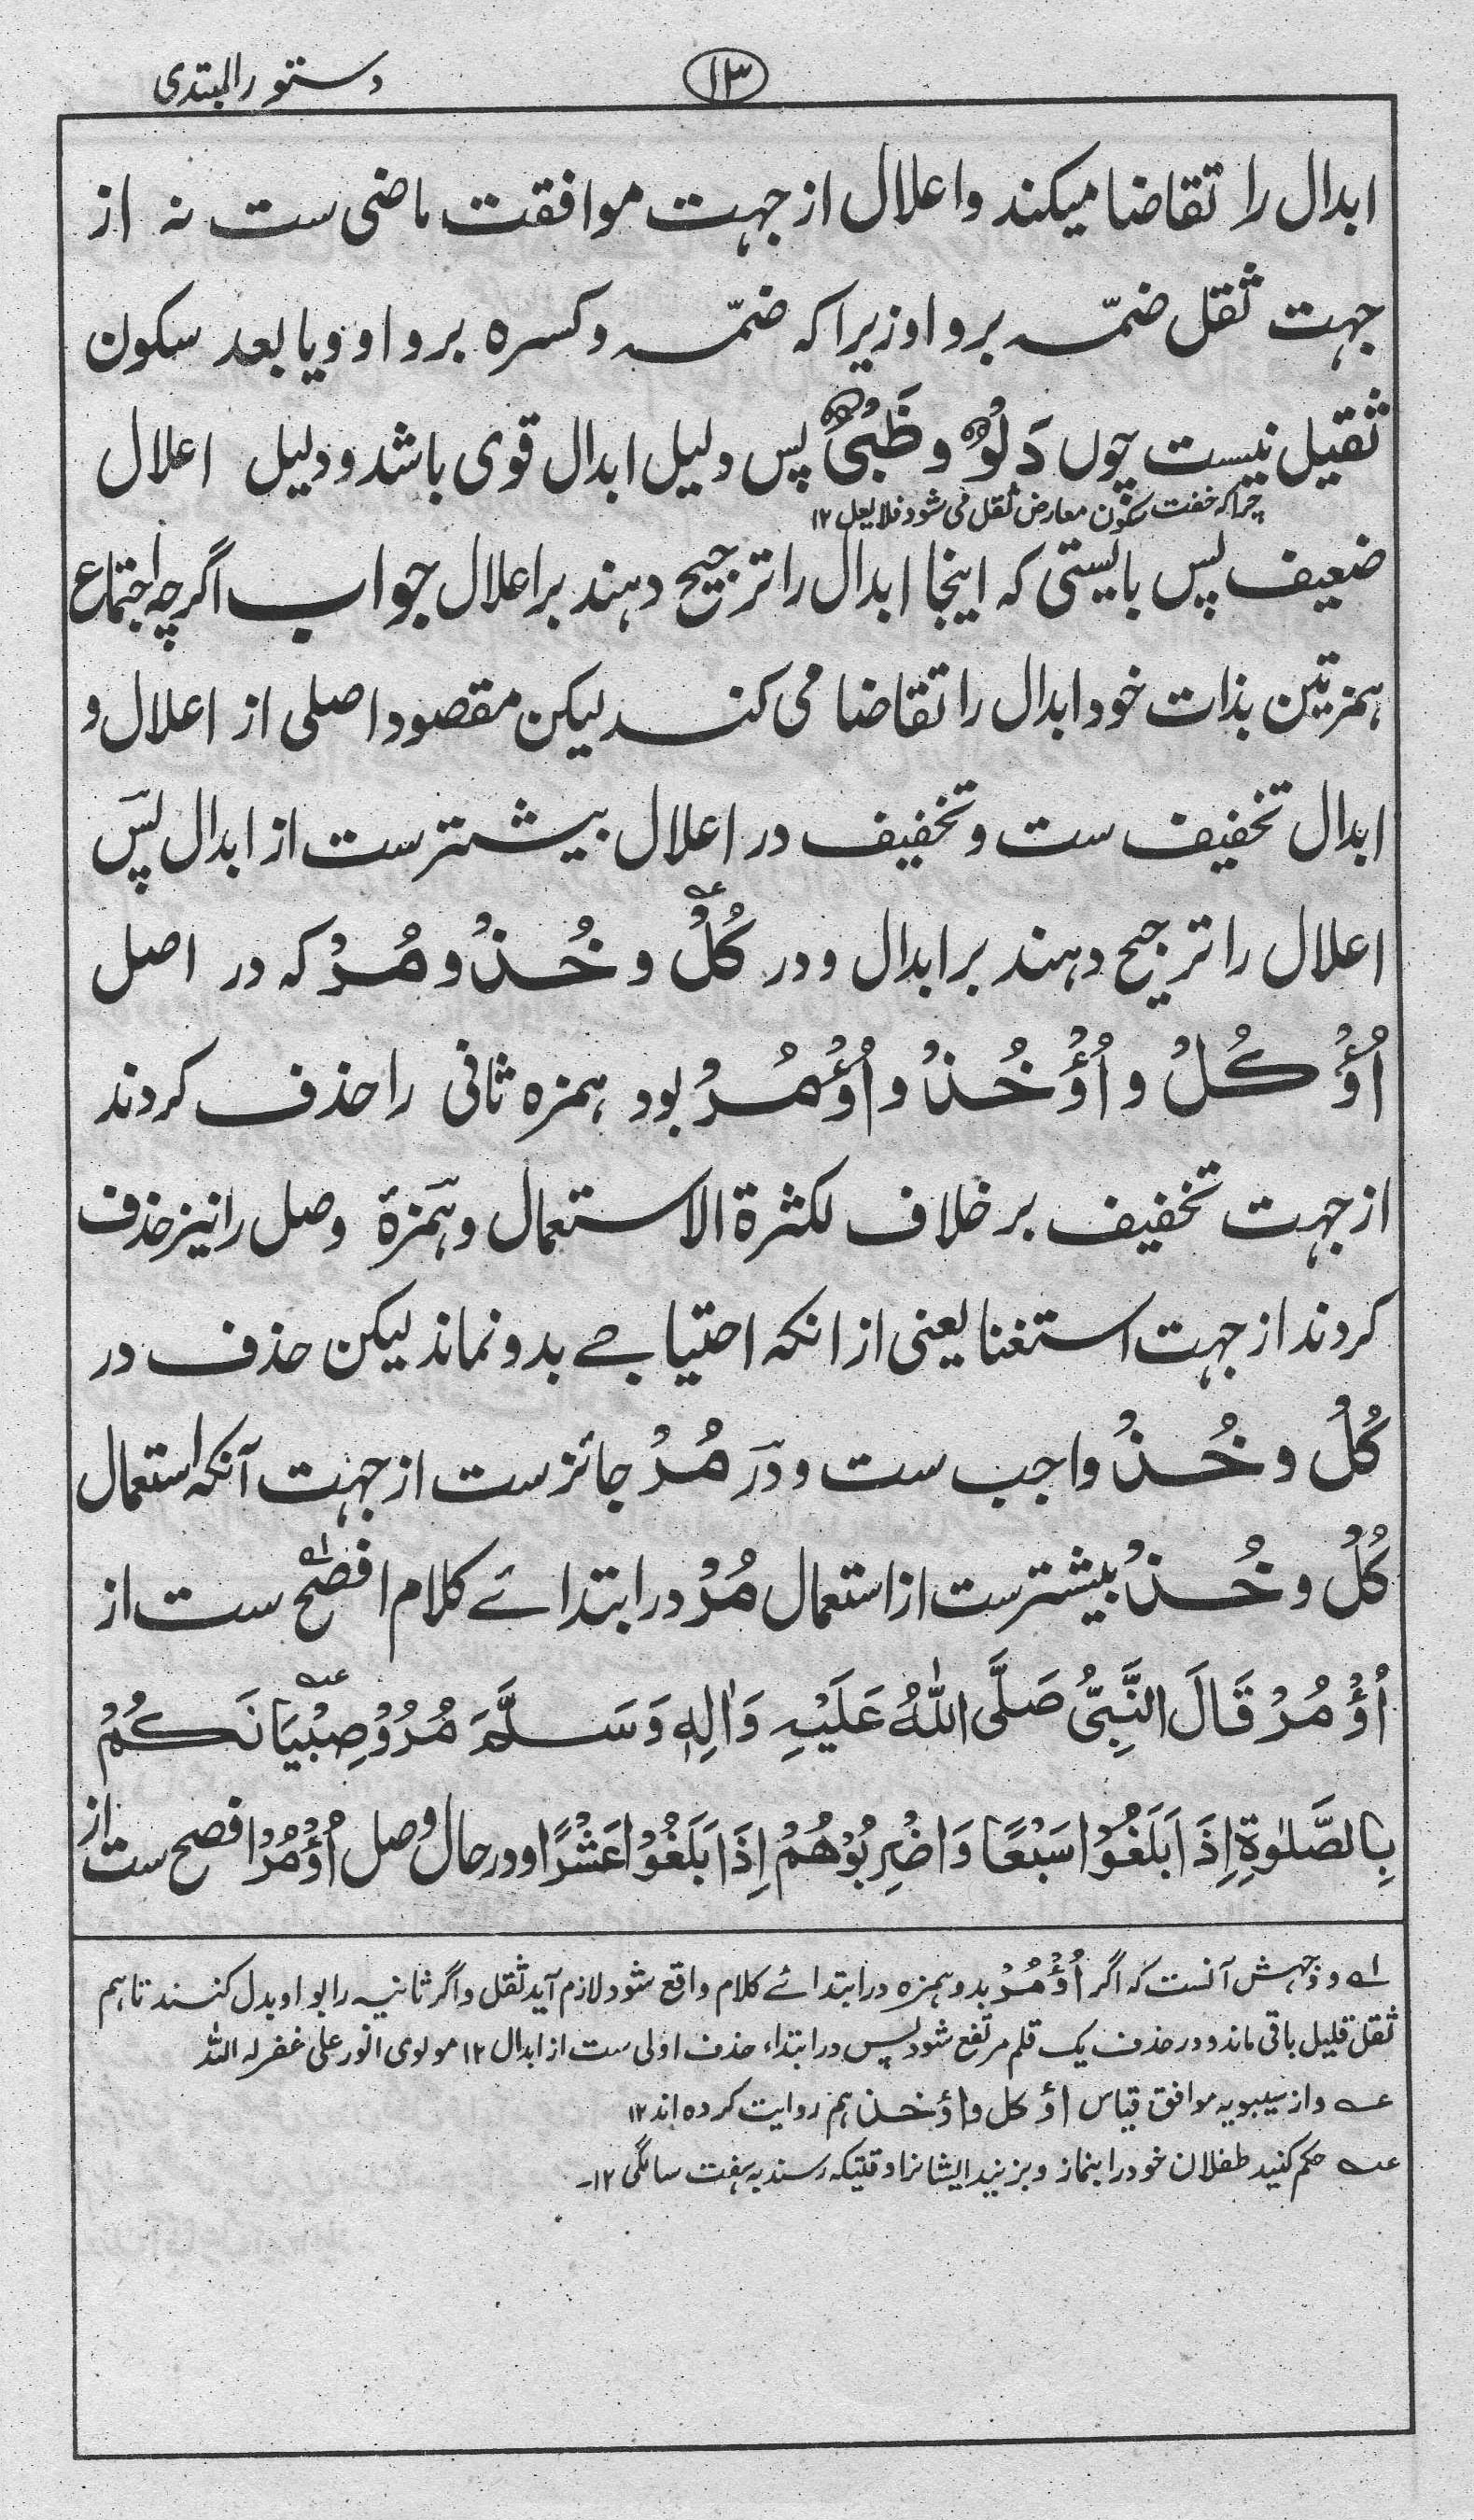 دستور المبتدی
۱۳
ابدال را تقاضا میکند و اعلال از جهت موافقت ماضی ست نہ از
جهت ثقل ضمّہ بر واو زیرا کہ ضمّہ و کسرہ بر واو و یا بعد سکون
ثقیل نیست چوں دَلْوٌ و ظَبْیٌ پس دلیل ابدال قوی باشد و دلیل اعلال
چرا کہ خفت سکون معارض ثقل می شود فلا یعل ۱۲
ضعیف پس بایستی کہ اینجا ابدال را ترجیح دہند بر اعلال جواب اگرچہ اجتماع
ہمزتین بذات خود ابدال را تقاضا می کند لیکن مقصود اصلی از اعلال و
ابدال تخفیف ست و تخفیف در اعلال بیشترست از ابدال پس
اعلال را ترجیح دہند بر ابدال و در کُلْ و خُذْ و مُرْ کہ در اصل
اُؤْکُلْ و اُؤْخُذْ و اُؤْمُرْ بود ہمزہ ثانی را حذف کردند
از جہت تخفیف بر خلاف لکثرة الاستعمال و ہمزۂ وصل را نیز حذف
کردند از جہت استغنا یعنی از انکہ احتیاجے بدو نماند لیکن حذف در
کُلْ و خُذْ واجب ست و در مُرْ جائز ست از جہت آنکہ استعمال
کُلْ و خُذْ بیشترست از استعمال مُرْ در ابتدائے کلام افصح ۱ہ ست از
اُؤْمُرْ قَالَ النَّبِیُّ صَلَّی اللّٰهُ عَلَیْهِ وَاٰلِهٖ وَسَلَّمَ مُرُوْ صِبْیَانَکُمْ عہ
بِالصَّلٰوةِ اِذَا بَلَغُوْا سَبْعًا وَاضْرِبُوْهُمْ اِذَا بَلَغُوْا عَشْرًا و در حال وصل اُؤْمُرْ افصح ست از
۱ہ و وجہش آنست کہ اگر اُؤْمُرْ بدو ہمزہ در ابتدائے کلام واقع شود لازم آید ثقل و اگر ثانیہ را بواو بدل کنند تاہم
ثقل قلیل باقی ماند و در حذف یک قلم مرتفع شود پس در ابتداء حذف اولی ست از ابدال ۱۲ مولوی انور علی غفر لہ اللہ
عہ و از سیبویہ موافق قیاس اؤکل و اؤخذ ہم روایت کردہ اند ۱۲
عہ حکم کنید طفلان خود را بنماز و بزنید ایشانرا وقتیکہ رسند بہ ہفت سالگی ۱۲۔